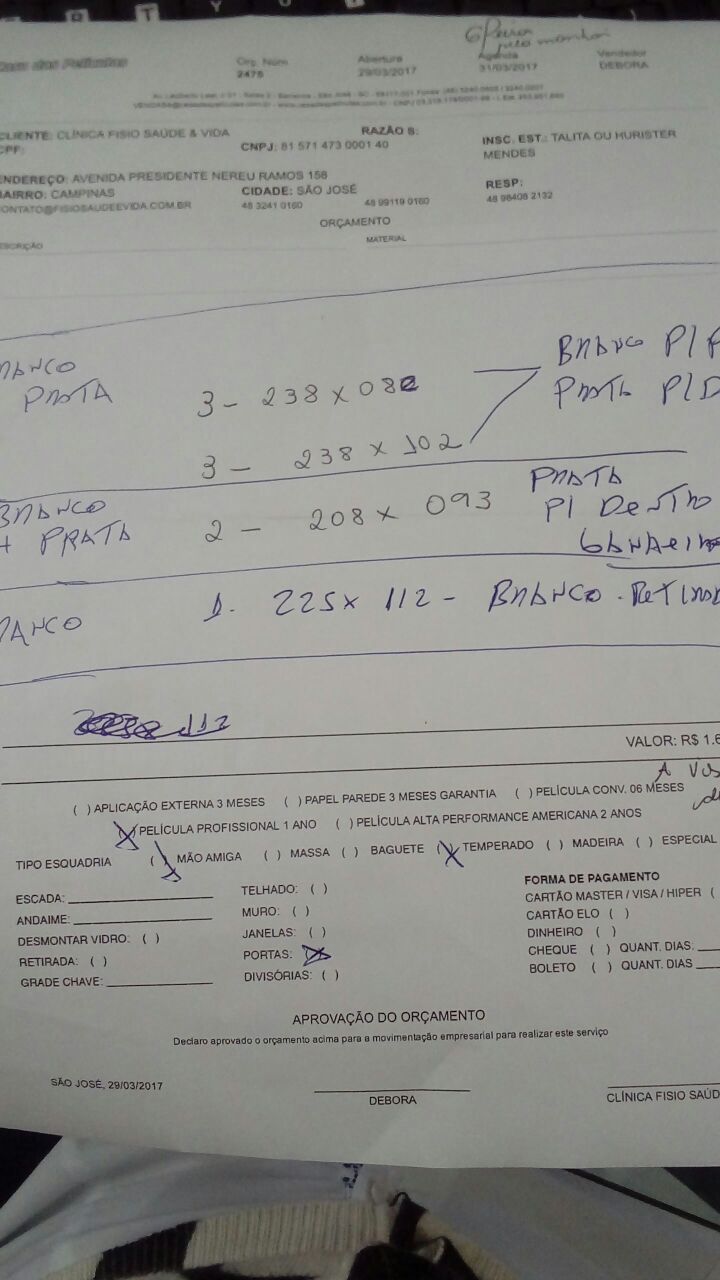 Orç. Núm. Abertura Agenda Vendedor
2476 29/03/2017 31/03/2017 DEBORA
CLIENTE: CLÍNICA FISIO SAÚDE & VIDA RAZÃO S:
CPF: CNPJ: 81 571 473 0001 40 INSC. EST.: TALITA OU HURISTER
MENDES
ENDEREÇO: AVENIDA PRESIDENTE NEREU RAMOS 156
BAIRRO: CAMPINAS CIDADE: SÃO JOSÉ RESP:
CONTATO@FISIOSAUDEEVIDA.COM.BR 48 3241 0160 48 99119 0160 48 98408 2132
ORÇAMENTO
DESCRIÇÃO MATERIAL
BRANCO P/
PRATA 3 - 238 x 082 PRATA P/D
3 - 238 x 102
BRANCO PRATA
+ PRATA 2 - 208 x 093 P/ DENTRO
1. 225 x 112 - BRANCO
VALOR: R$ 1.6
A
( ) APLICAÇÃO EXTERNA 3 MESES ( ) PAPEL PAREDE 3 MESES GARANTIA ( ) PELÍCULA CONV. 06 MESES
(X) PELÍCULA PROFISSIONAL 1 ANO ( ) PELÍCULA ALTA PERFORMANCE AMERICANA 2 ANOS
TIPO ESQUADRIA ( ) MÃO AMIGA ( ) MASSA ( ) BAGUETE (X) TEMPERADO ( ) MADEIRA ( ) ESPECIAL
ESCADA: TELHADO: ( ) FORMA DE PAGAMENTO
ANDAIME: MURO: ( ) CARTÃO MASTER / VISA / HIPER (
DESMONTAR VIDRO: ( ) JANELAS: ( ) CARTÃO ELO ( )
RETIRADA: ( ) PORTAS: (X) DINHEIRO ( )
GRADE CHAVE: DIVISÓRIAS: ( ) CHEQUE ( ) QUANT. DIAS:
BOLETO ( ) QUANT. DIAS
APROVAÇÃO DO ORÇAMENTO
Declaro aprovado o orçamento acima para a movimentação empresarial para realizar este serviço
SÃO JOSÉ, 29/03/2017
DEBORA CLÍNICA FISIO SAÚD